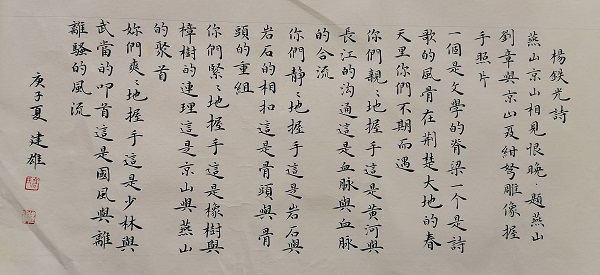 楊鉄光詩
燕山京山相見恨晚·題燕山
劉章與京山聂紺弩雕像握
手照片
一個是文學的脊梁一个是詩
歌的風骨在荆楚大地的春
天里你們不期而遇
你們親〻地握手這是黄河與
長江的沟通這是血脈與血脈
的合流
你們靜〻地握手這是岩石與
岩石的相扣這是骨頭與骨
頭的重組
你們緊〻地握手這是橡樹與
樟樹的連理這是京山與燕山
的聚首
妳們爽〻地握手這是少林與
武當的叩首這是國風與離
離騷的風流
庚子夏 建雄